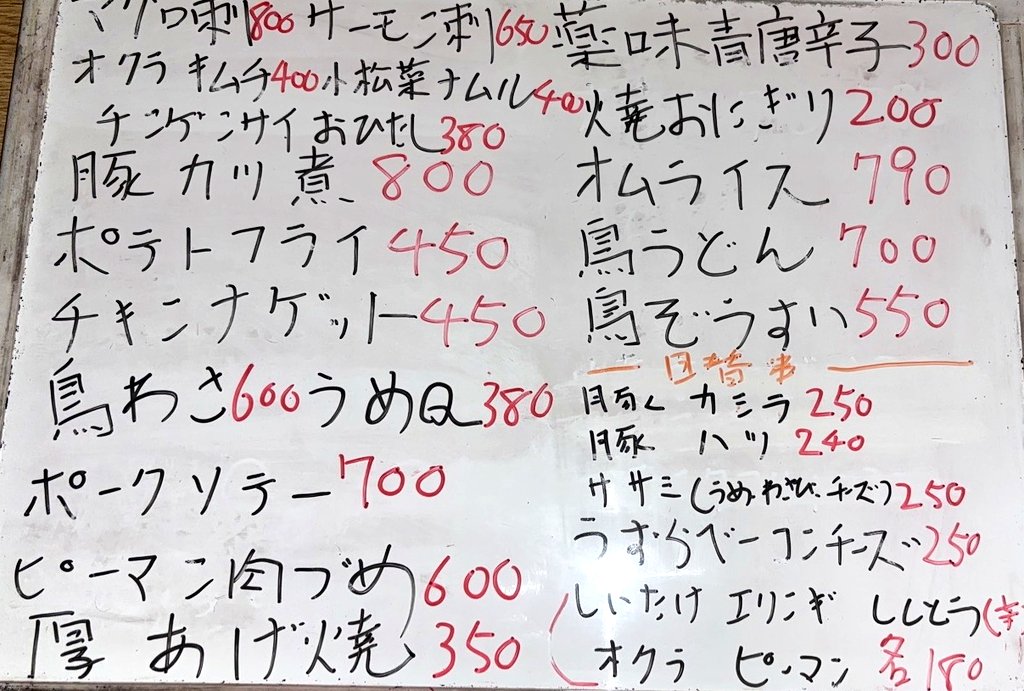 マグロ刺800 サーモン刺650
オクラキムチ400 小松菜ナムル400
チンゲンサイおひたし380
豚カツ煮 800
ポテトフライ 450
チキンナゲット450
鳥わさ600 うめQ380
ポークソテー700
ピーマン肉づめ600
厚あげ焼 350
薬味青唐辛子300
焼おにぎり200
オムライス 790
鳥うどん 700
鳥ぞうすい550
日替串
豚しカミラ250
豚ハツ 240
ササミ(うめ・わさび・チーズ)250
うずらベーコンチーズ250
しいたけ エリンギ ししとう
オクラ ピーマン 各180